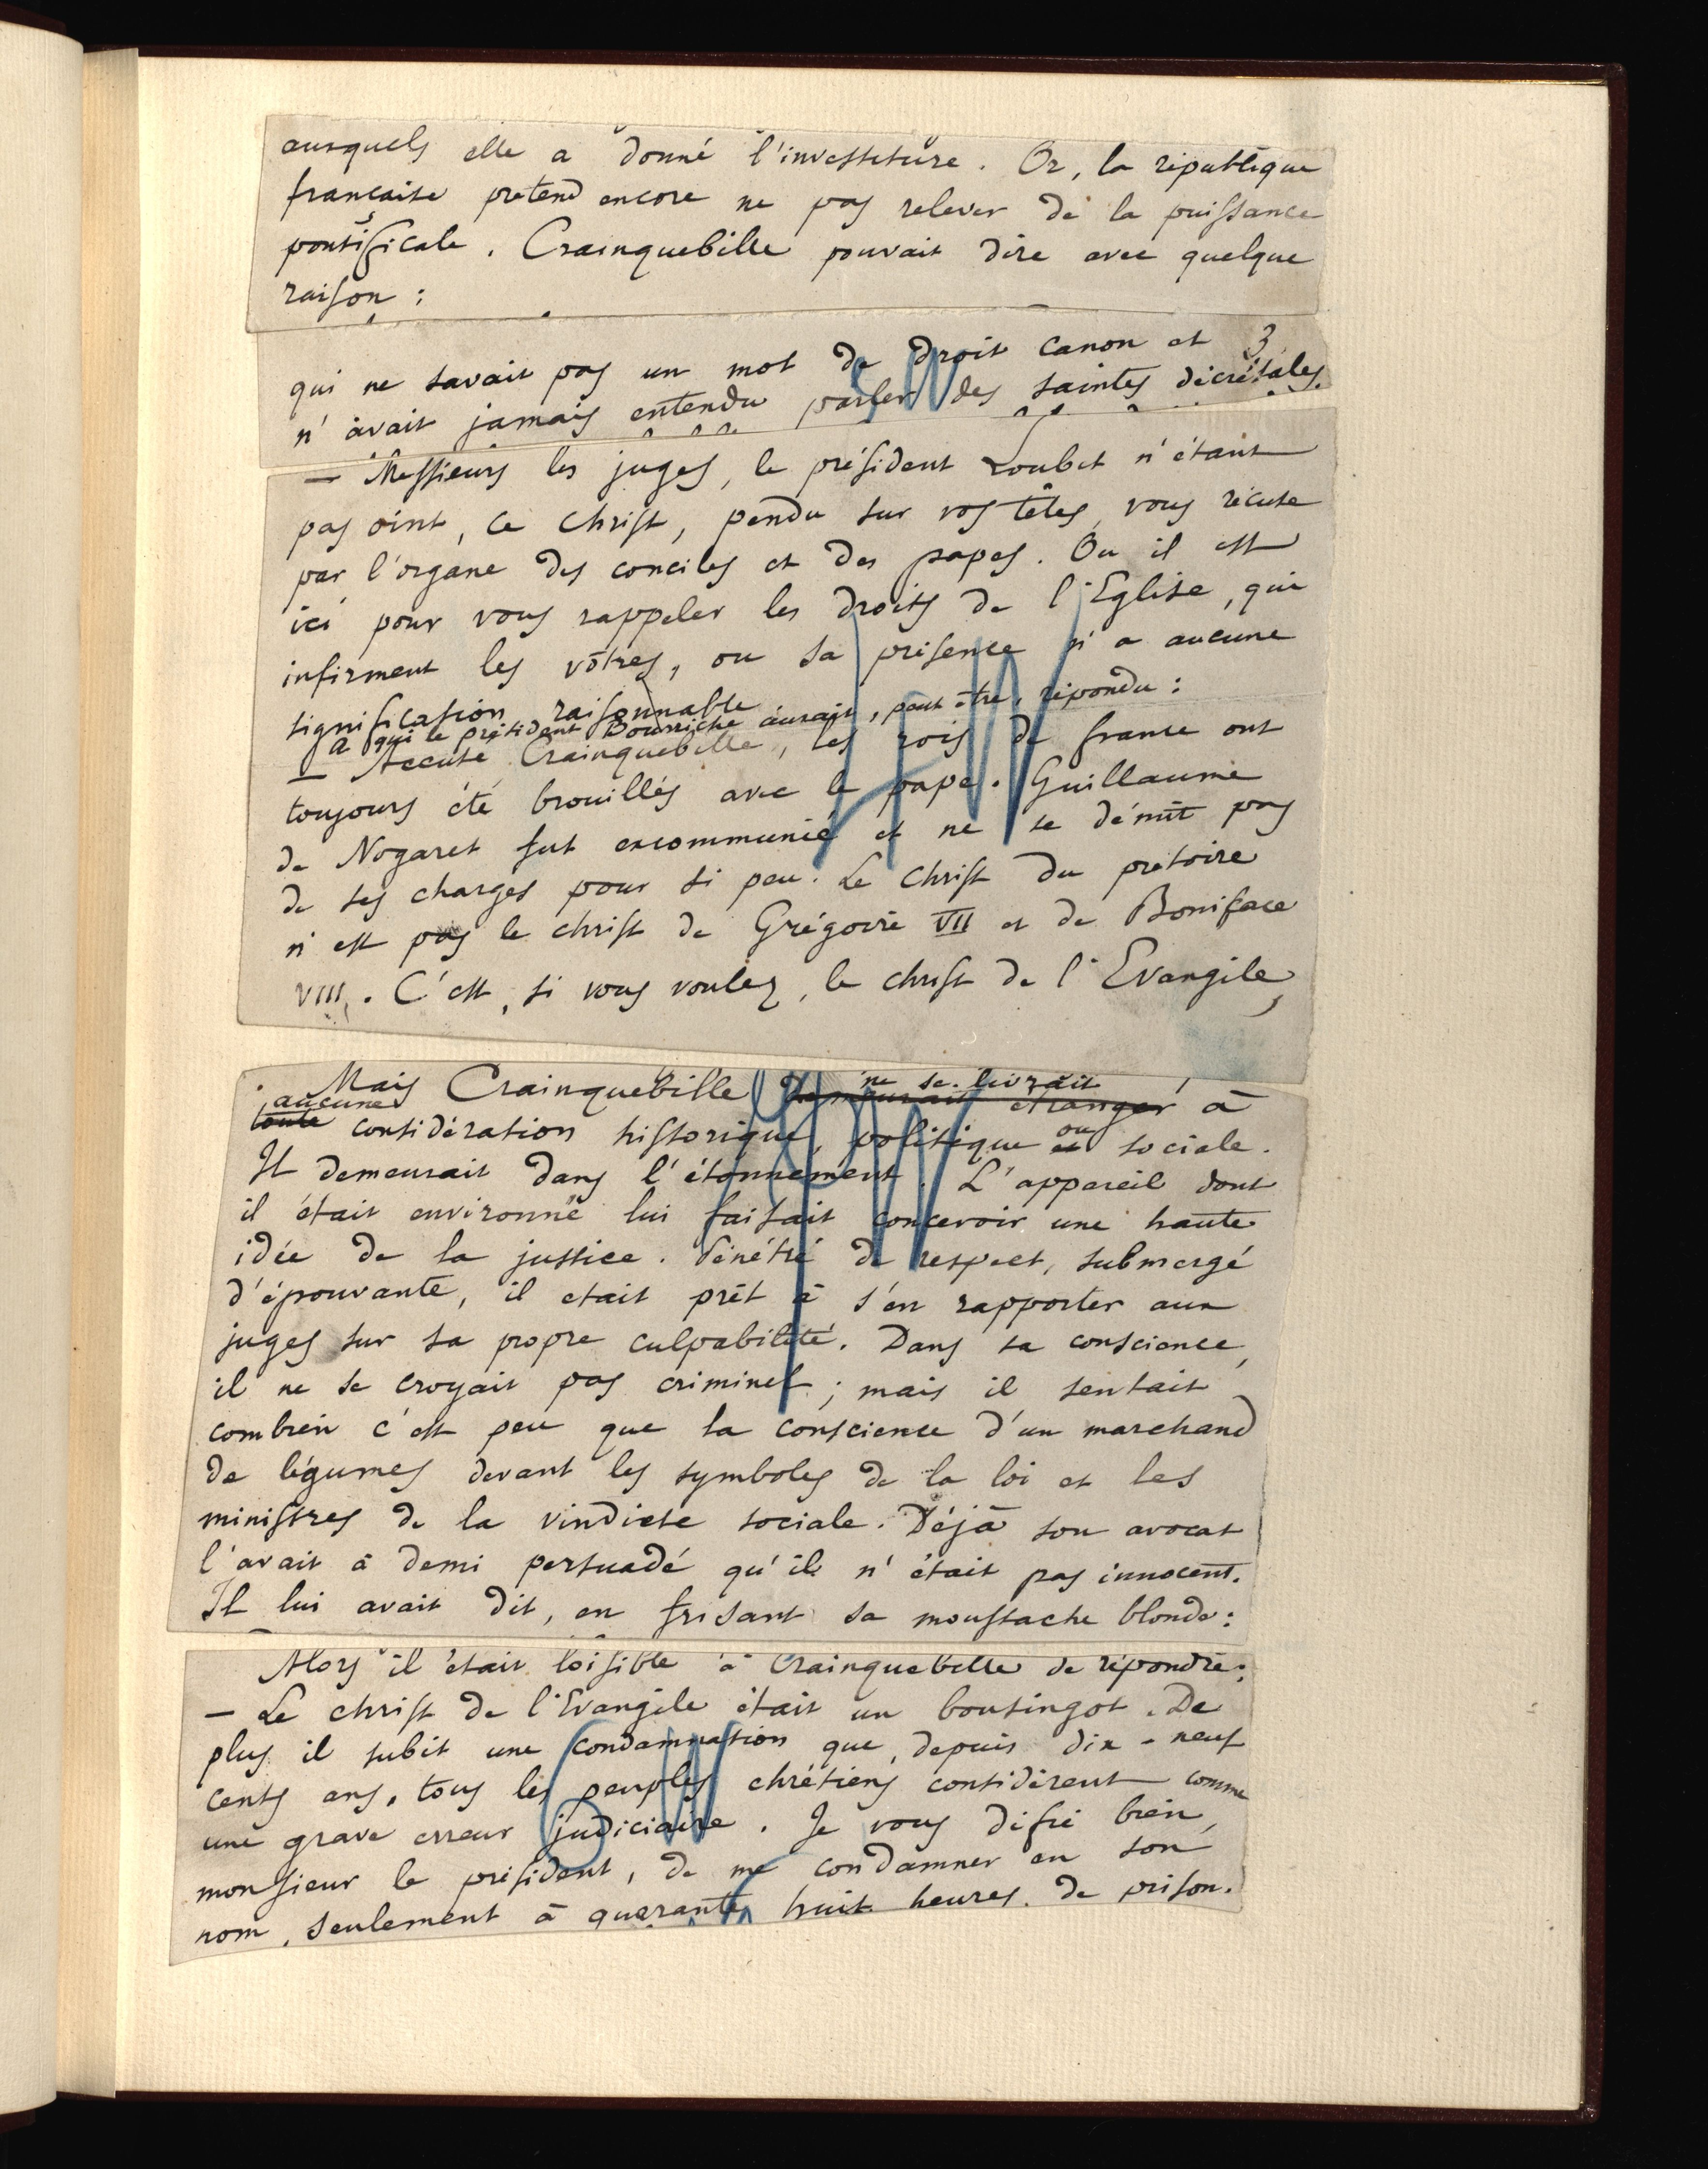 auxquels elle a donné l'investiture. Or, la république
française prétend encore ne pas relever de la puissance
pontificale. Crainquebille pouvait dire avec quelque
raison :
qui ne savait pas un mot de droit canon et 3
n'avait jamais entendu parler des saintes décrétales.
— Messieurs les juges, le président Loubet n'étant
pas oint, ce christ, pendu sur vos têtes, vous récuse
par l'organe des conciles et des papes. Ou il est
ici pour vous rappeler les droits de l'Eglise, qui
infirment les vôtres, ou sa présence n'a aucune
signification raisonnable
A qui le président Bourriche aurait, peut être, répondu :
— Accusé Crainquebille, les rois de france ont
toujours été brouillés avec le pape. Guillaume
de Nogaret fut excommunié et ne se démit pas
de ses charges pour si peu. Le christ du prétoire
n'est pas le christ de Grégoire VII et de Boniface
VIII. C'est, si vous voulez, le christ de l'Evangile,
ne se livrait
Mais Crainquebille demeurait étranger à
aucune
toute considération historique, politique ou et sociale.
Il demeurait dans l'étonnement. L'appareil dont
il était environné lui faisait concevoir une haute
idée de la justice. Pénétré de respect, submergé
d'épouvante, il etait prêt à s'en rapporter aux
juges sur sa propre culpabilité. Dans sa conscience,
il ne se croyait pas criminel ; mais il sentait
combien c'est peu que la conscience d'un marchand
de légumes devant les symboles de la loi et les
ministres de la vindicte sociale. Déjà son avocat
l'avait à demi persuadé qu'il n'était pas innocent.
Il lui avait dit, en frisant sa moustache blonde :
Alors il était loisible à Crainquebille de répondre :
— Le christ de l'Evangile était un bousingot. De
plus il subit une condamnation que, depuis dix-neuf
cents ans, tous les peuples chrétiens considèrent comme
une grave erreur judiciaire. Je vous défie bien,
monsieur le président, de me condamner en son
nom, seulement à quarante huit heures de prison.